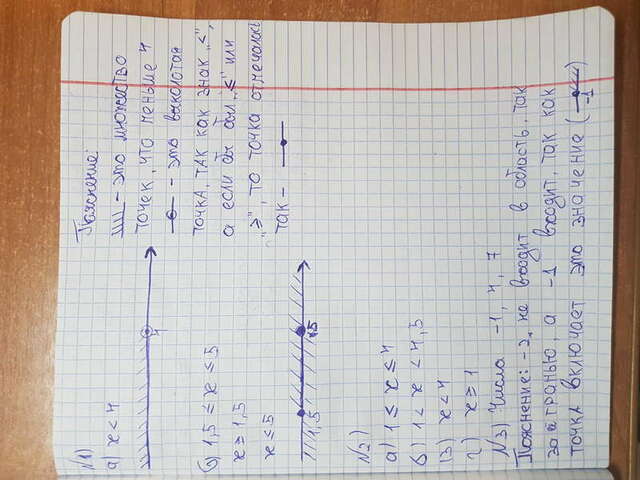 №1)
а) x < 4
4
Пояснение:
- это множество
точек, что меньше 4
- это выколотая
точка, так как знак „<",
а если бы был „≤" или
„≥", то точка отмечалась
так -
б) 1,5 ≤ x ≤ 5
x ≥ 1,5
x ≤ 5
1,5
№2)
а) 1 ≤ x ≤ 4
б) 1 < x < 4,5
в) x < 4
г) x ≥ 1
№3) Числа -1, 4, 7
Пояснение: -2, не входит в область, так
за гранью, а -1 входит, так как
точка включает это значение (
-1